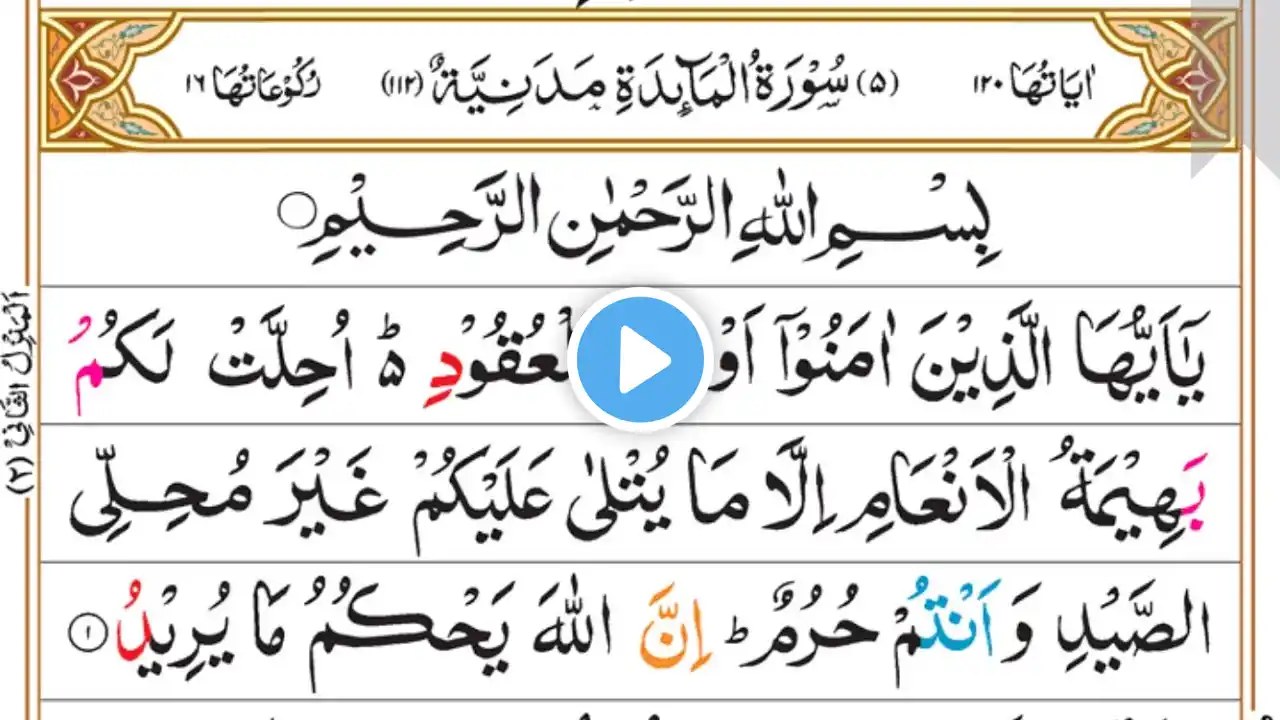 اٰيَاتُهَا ١٢٠ (٥) سُوْرَةُ الْمَآئِدَةِ مَدَنِيَّةٌ (١١٢) رُكُوْعَاتُهَا ١٦
بِسْمِ اللّٰهِ الرَّحْمٰنِ الرَّحِيْمِ
يٰۤاَيُّهَا الَّذِيْنَ اٰمَنُوْۤا اَوْ لْعُقُوْدِ ؕ۵ اُحِلَّتْ لَكُمْ
بَهِيْمَةُ الْاَنْعَامِ اِلَّا مَا يُتْلٰى عَلَيْكُمْ غَيْرَ مُحِلِّى
الصَّيْدِ وَ اَنْتُمْ حُرُمٌ ؕ اِنَّ اللّٰهَ يَحْكُمُ مَا يُرِيْدُ ١
اَلْمَنْزِلُ الثَّانِيْ (٢)